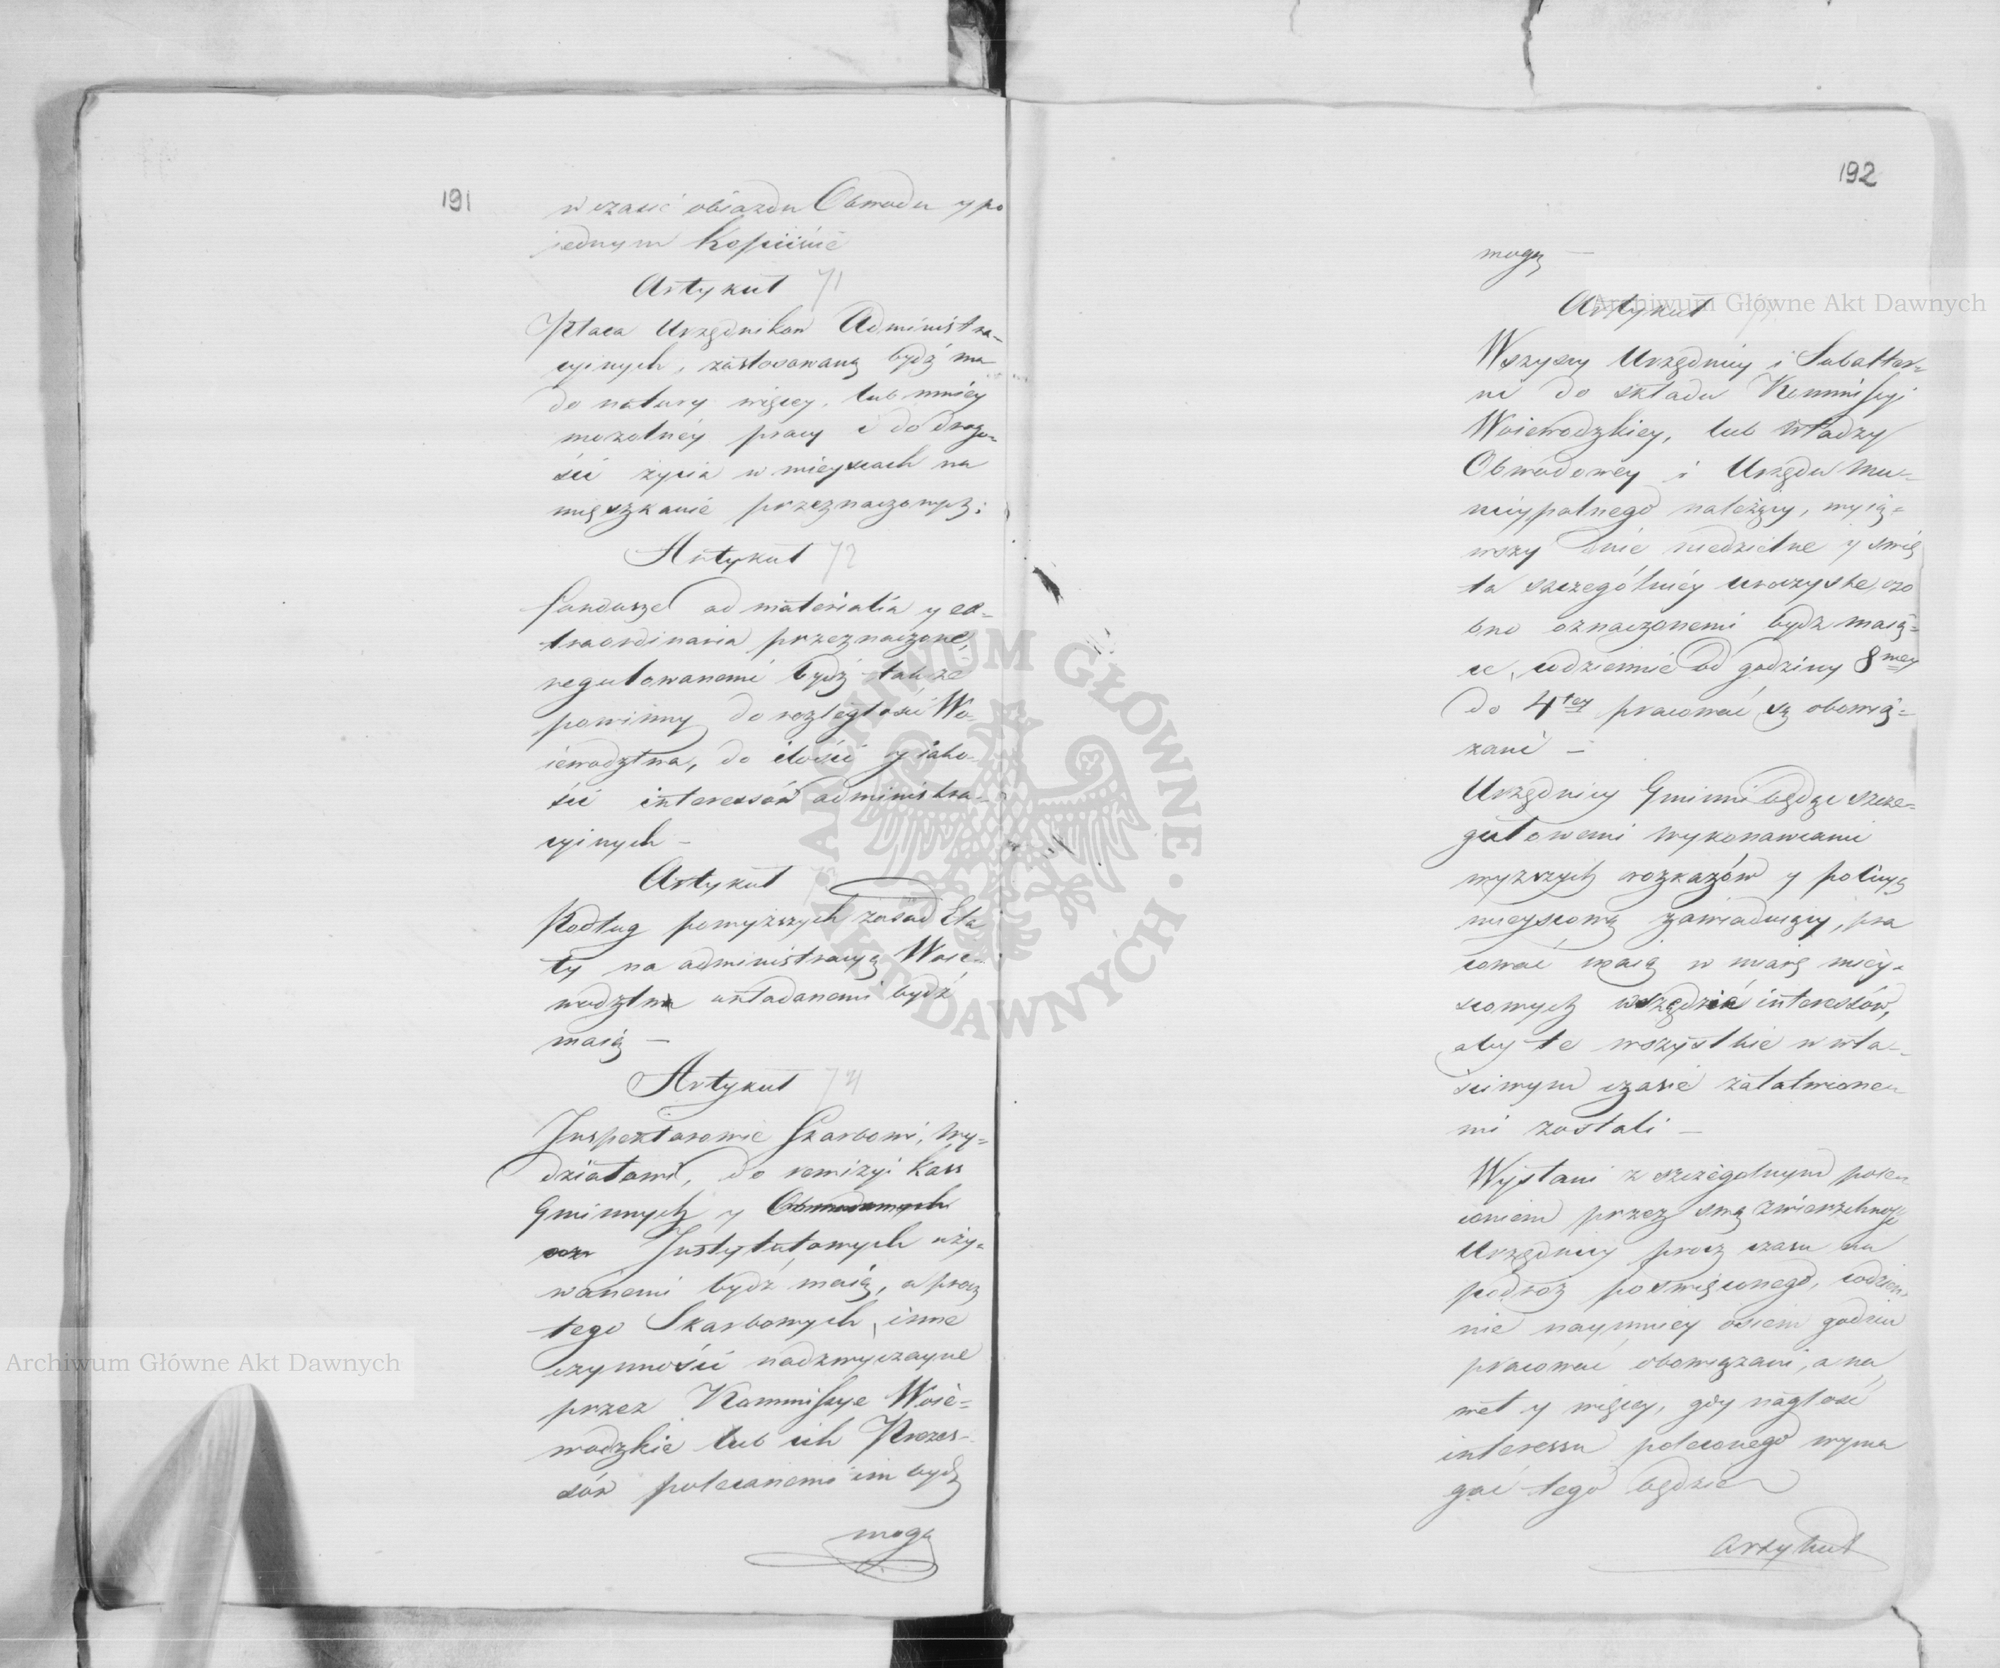 191
w czasie obiazdu Obwodu y po
jednym Kopiiście
Artykuł 71
Płaca Urzędników Administra-
cyinych, zastosowaną bydź ma
do natury więcey lub mniey
mozolney pracy i do drogo-
ści życia w mieyscach na
mięszkanie przeznaczonych;
Artykuł 72
fundusze ad materialia y ex-
traordinaria przeznaczone,
regulowanemi bydź także
powinny do rozległości Wo-
iewodztwa, do ilości y iako-
ści interessów administra-
cyinych –
Artykuł
Podług powyższych zasad Eta
ty na administracyą Woie-
wodztwa układanemi bydź
maią –
Artykuł 74
Inspektorowie Skarbowi, wy-
działowi, do rewizyi kass
Gminnych y Obwodowych
oraz Instytutowych uży-
wanemi bydź maią, a procz
tego Skarbowych, inne
czynności nadzwyczayne
przez Kommissye Woie-
wodzkie lub ich Prezes-
sów polecanemi im bydź
mogą
192
mogą –
Artykuł
Wszyscy Urzędnicy i Subalter-
ni do składu Kommissyi
Woiewodzkiey, lub Władzy
Obwodowey i Urzędu Mu-
nicypalnego należący, wyią-
wszy dnie niedzielne y świę
ta szczególniey uroczyste, oso
bno oznaczonemi bydź maią-
ce, codziennie od godziny 8mey
do 4tey pracować są obowią-
zani –
Urzędnicy Gminni będąc szcze-
gułowemi wykonawcami
wyższych rozkazów y policyą
mieyscową zawiaduiący, pra
cować maią w miarę miey-
scowych wszędzie interessów,
aby te wszystkie w wła-
ściwym czasie załatwione-
mi zostali –
Wysłani z szczegolnym pole-
ceniem przez swą zwierzchność
Urzędnicy procz czasu na
podroż poswięconego, codzien-
nie naymniey osiem godzin
pracować obowiązani, a na
wet y więcey, gdy nagłość
interessu poleconego wyma
gać tego będzie
Artykuł
Archiwum Główne Akt Dawnych
Archiwum Główne Akt Dawnych
ARCHIWUM GŁÓWNE · AKT DAWNYCH ·